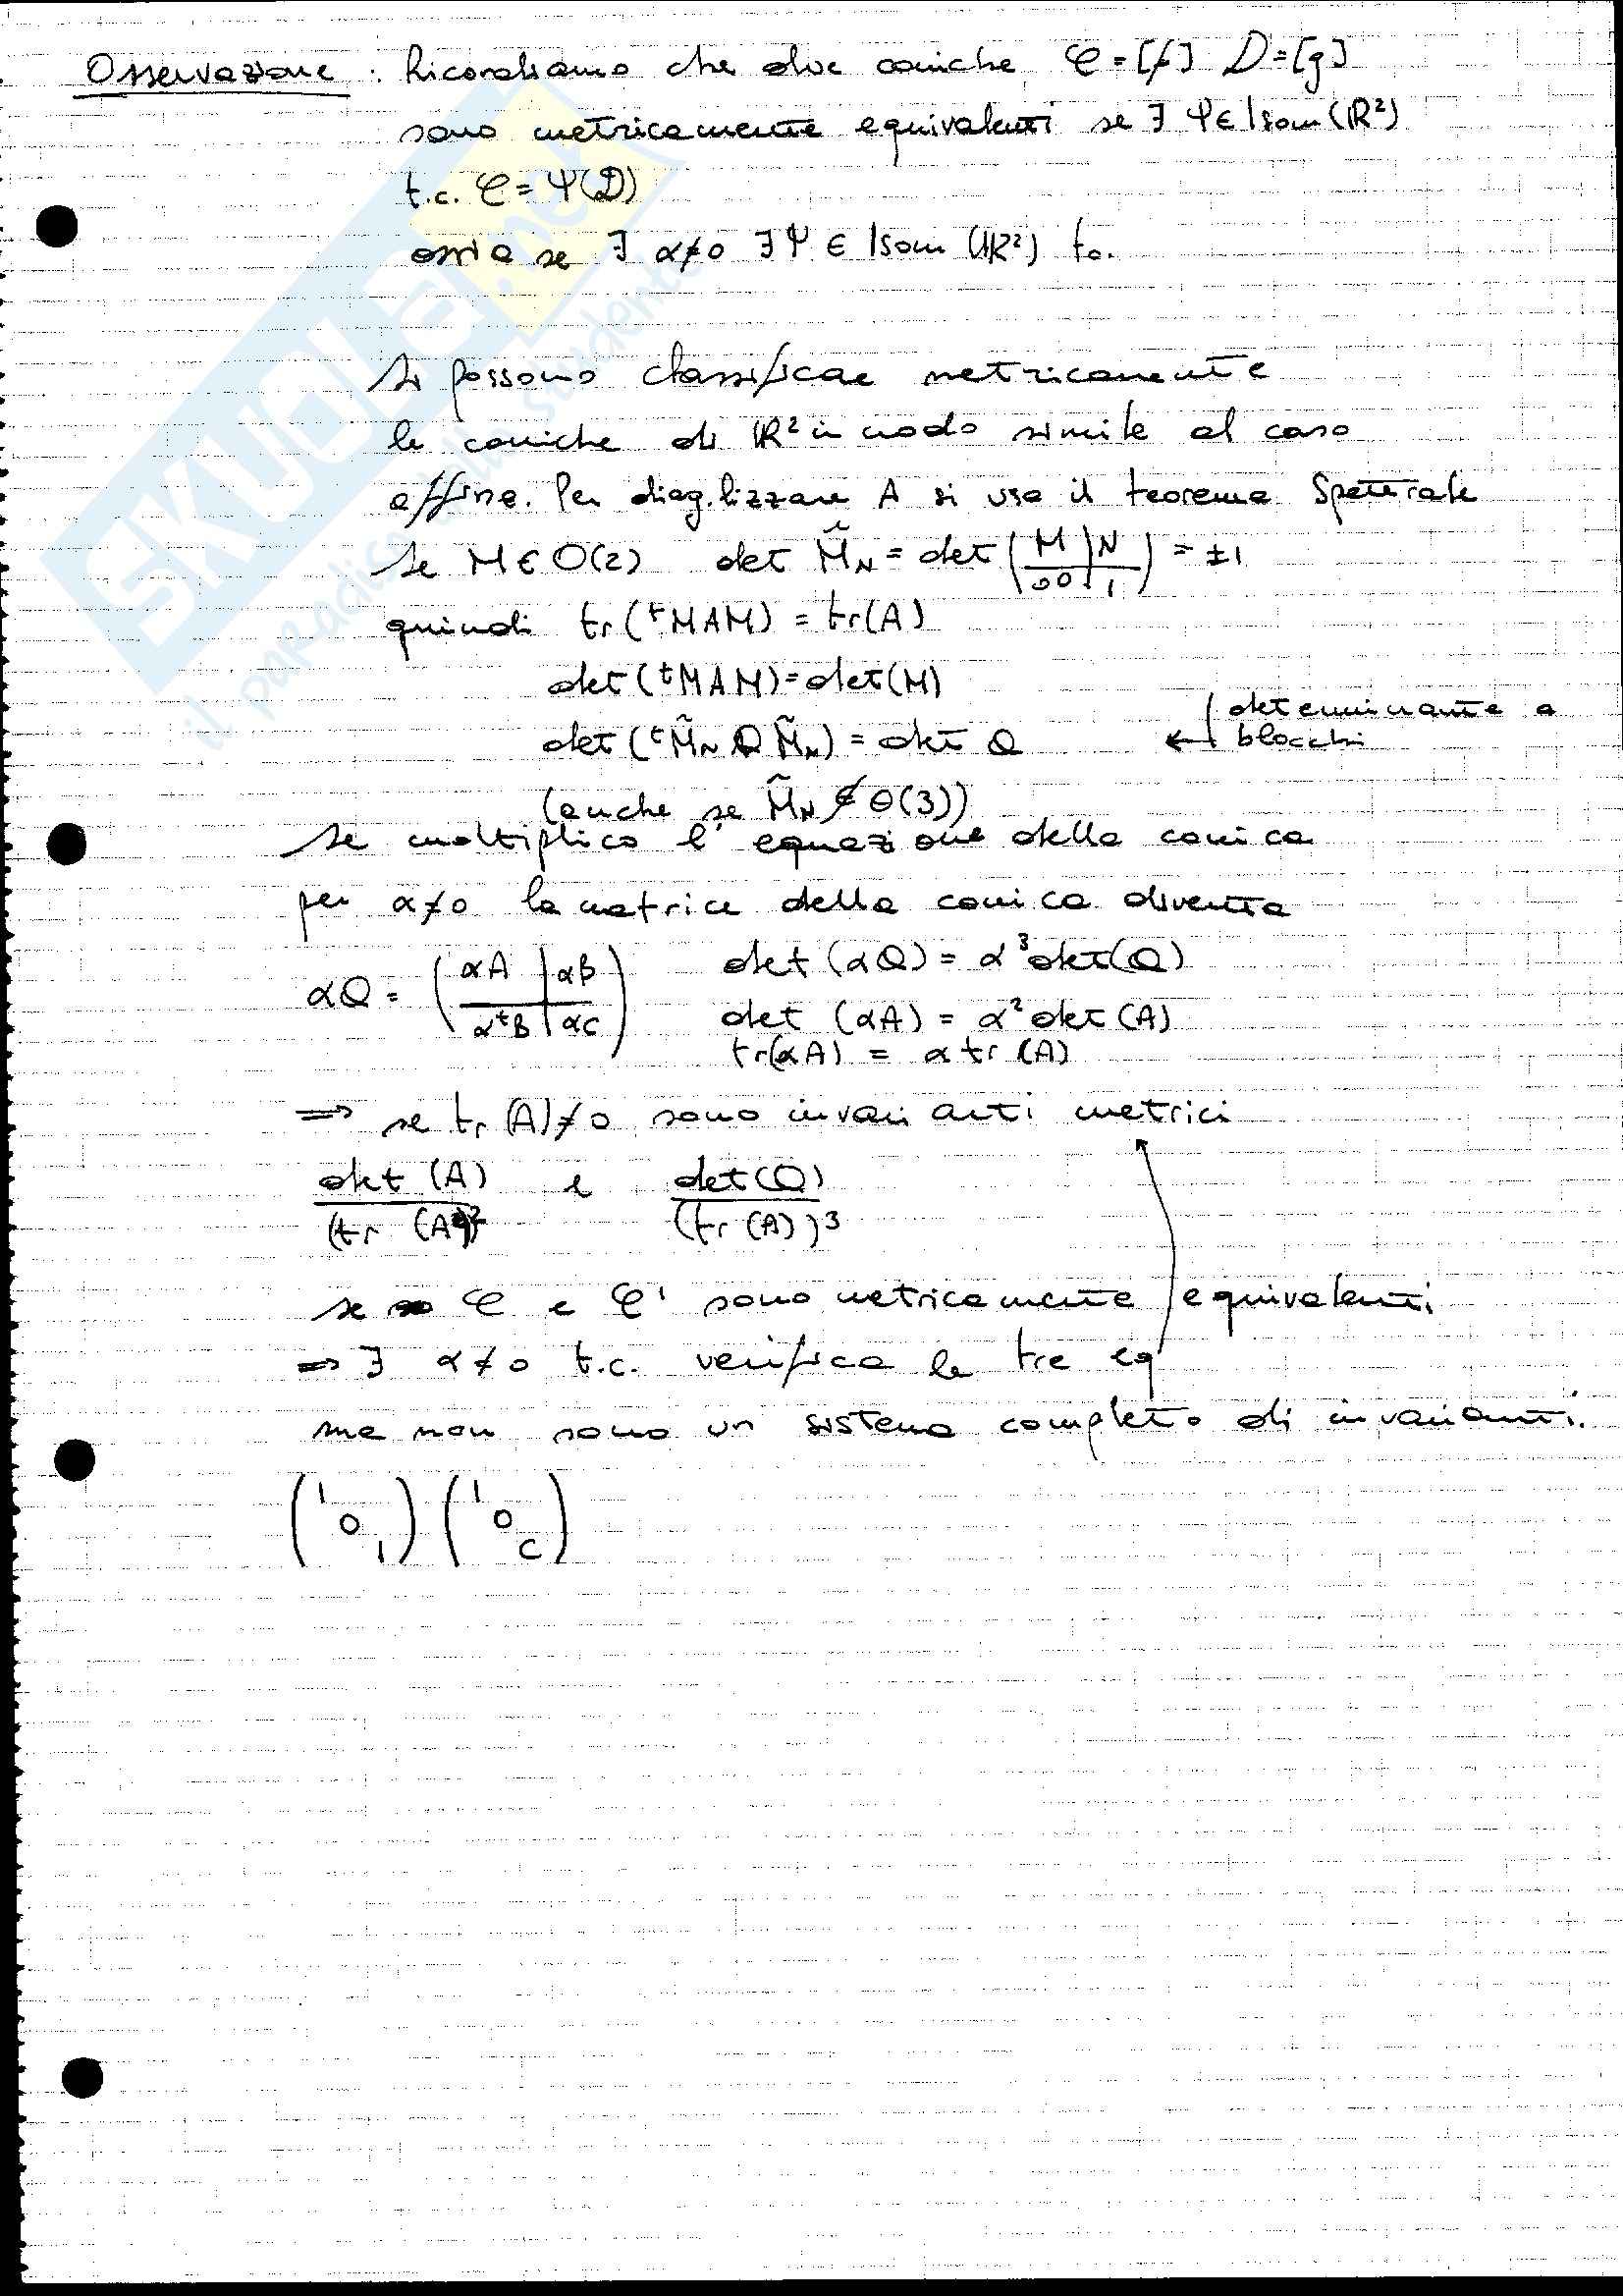 Osservazione : Ricordiamo che due coniche C=[f] D=[g]
sono metricamente equivalenti se ∃ Ψ∈Isom(ℝ²)
t.c. C=Ψ(D)
ossia se ∃ α≠0 ∃Ψ∈Isom(ℝ²) t.c.
Si possono classificae metricamente
le coniche di ℝ² in modo simile al caso
affine. Per diag.lizzare A si usa il teorema Spettrale
Se M∈O(2) det M̃_N = det (M|N / 00|1) = ±1
quindi tr(ᵗMAM) = tr(A)
det(ᵗMAM)=det(M)
det(ᵗM̃_N Q M̃_N) = det Q ← determinante a
blocchi
(anche se M̃_N ∉ O(3))
Se moltiplico l'equazione della conica
per α≠0 la matrice della conica diventa
αQ = (αA|αB / αᵗB|αC) det(αQ) = α³det(Q)
det (αA) = α²det(A)
tr(αA) = α tr(A)
⇒ se tr(A)≠0 sono invarianti metrici
det(A)/(tr(A))² e det(Q)/(tr(A))³
se C e C' sono metricamente equivalenti
⇒ ∃ α≠0 t.c. verifica le tre eq
ma non sono un sistema completo di invarianti.
(1 0 1) (1 0 C)
SKUOLA.net
il paradiso dello studente